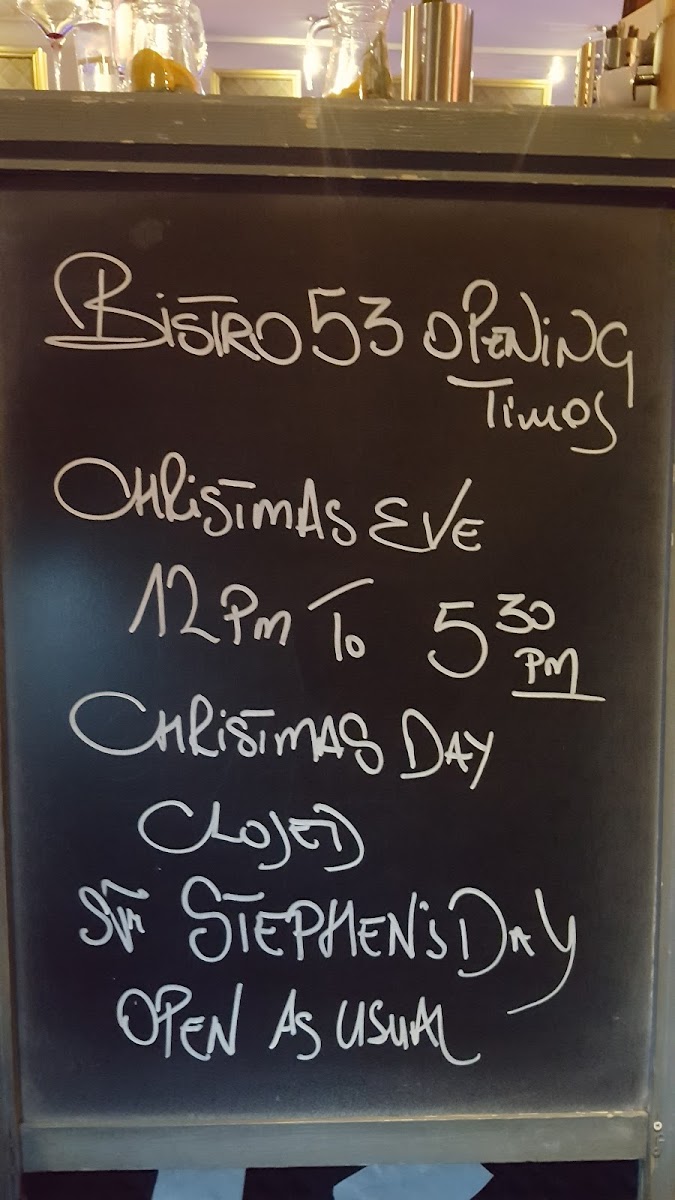 BISTRO 53 OPENING
TIMES
CHRISTMAS EVE
12 PM TO 5 30 PM
CHRISTMAS DAY
CLOSED
STEPHEN'S DAY
OPEN AS USUAL